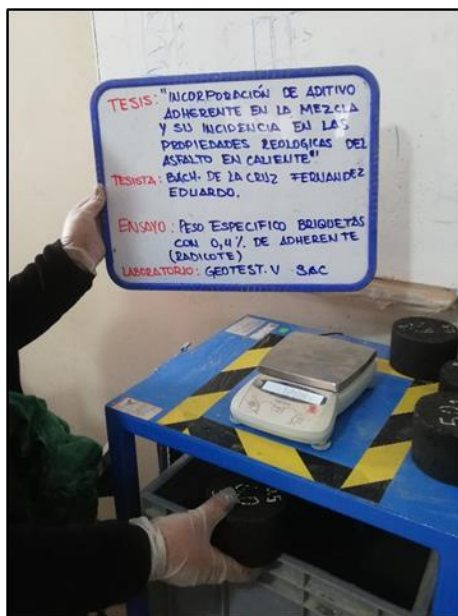 TESIS: "INCORPORACIÓN DE ADITIVO
ADHERENTE EN LA MEZCLA
Y SU INCIDENCIA EN LAS
PROPIEDADES REOLOGICAS DEL
ASFALTO EN CALIENTE"
TESISTA: BACH. DE LA CRUZ FERNANDEZ
EDUARDO.
ENSAYO: PESO ESPECIFICO BRIQUETAS
CON 0,4% DE ADHERENTE
(RADICOTE)
LABORATORIO: GEOTEST. V SAC